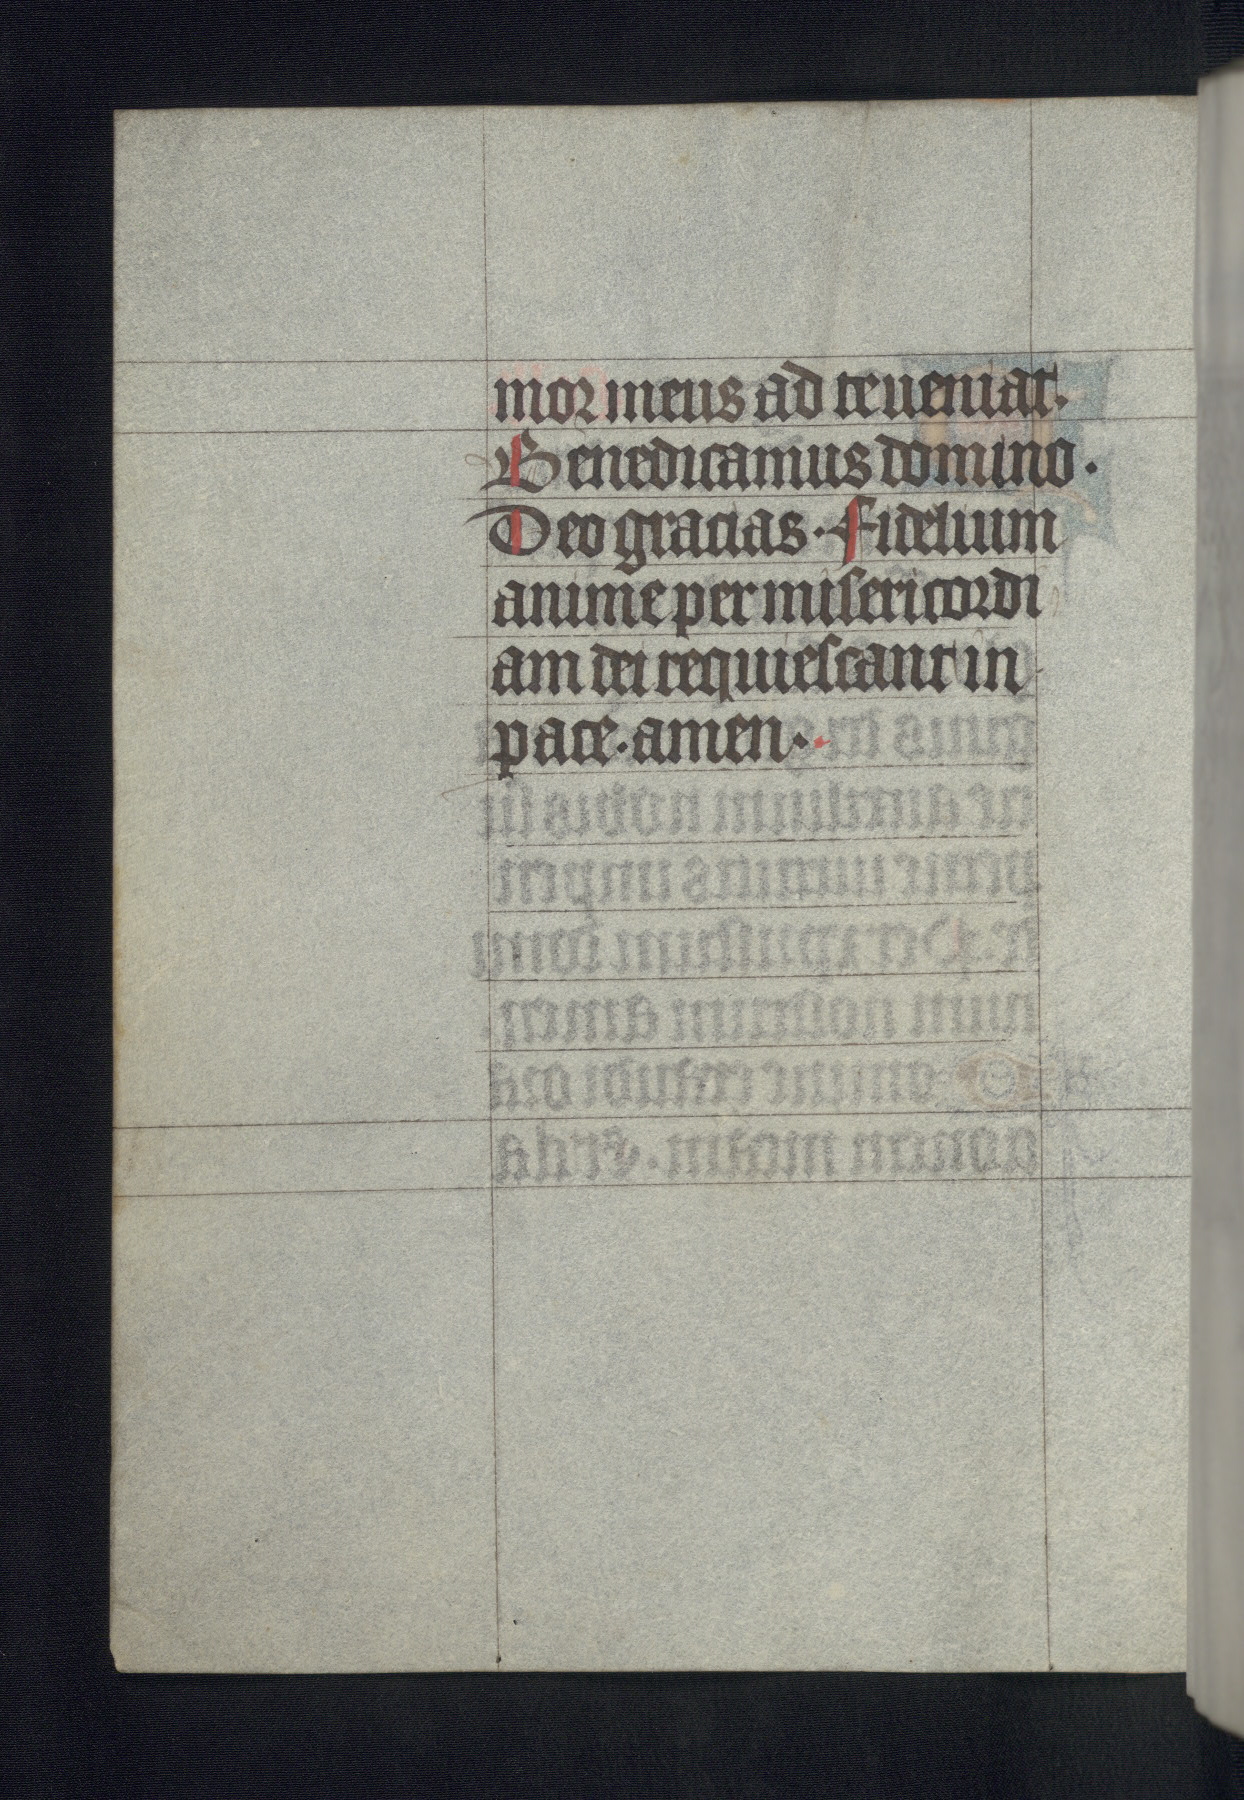 mor meus ad te ueniat.
Benedicamus domino.
Deo gracias. Fidelium
anime per misericordi
am dei requiescant in
pace. amen.